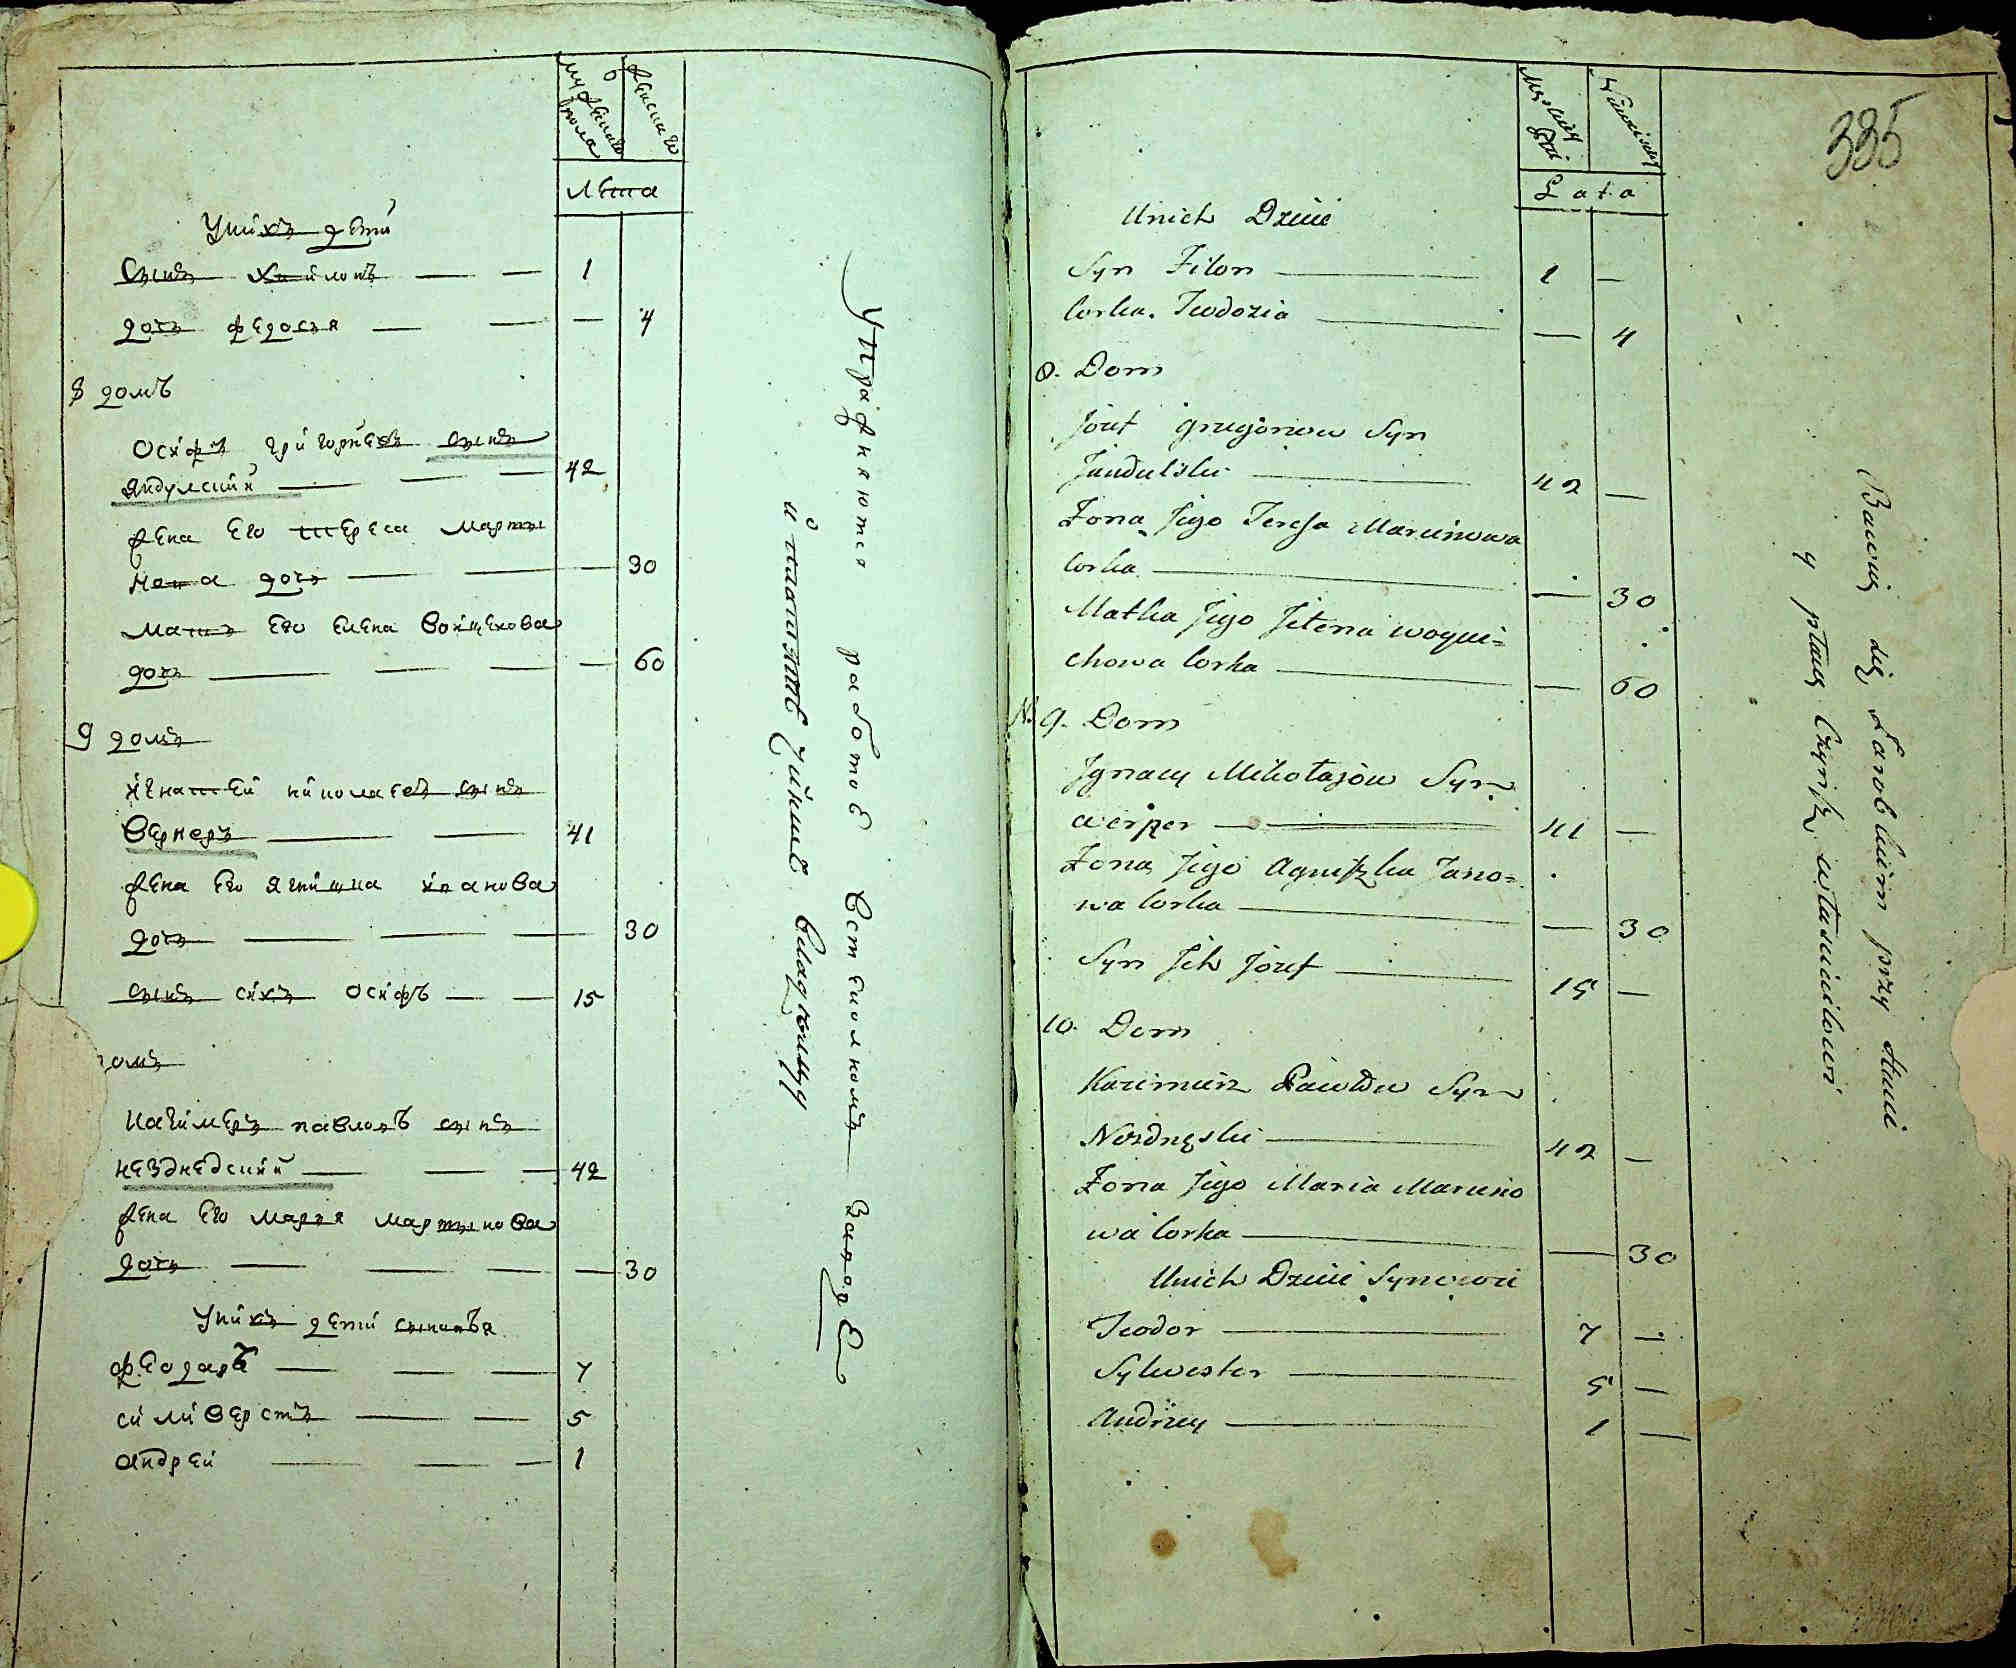 мужеска
пола
женска
лета
У них дети
Сынъ Филонъ — — 1
дочь Федосья — — — 4
8 домъ
Осифъ Григорьевъ сынъ
Яндулский — — — 42
жена его Тереса Марты
нова дочь — — — 30
мать его Елена Войцехова
дочь — — — — 60
9 домъ
Игнатей Николаевъ сынъ
Вернеръ — — 41
жена его Ягнишка Иванова
дочь — — — 30
сынъ сихъ Осифъ — — 15
домъ
Казимеръ Павловъ сынъ
Незднедский — — — 42
жена его Марья Мартынова
дочь — — — — 30
У них дети сыновья
Феодаръ — — — 7
Силиверстъ — — — 5
Андрей — — — 1
Упражняются работою в стеколномъ заводе
и платятъ чиншъ владельцу
335
Męskiey
Płci
Żeńskiey
Lata
Unich Dzieci
Syn Filon — 1 —
Corka. Teodozia — — 4
8. Dom
Józef Grzegorzow Syn
Jandulski — 42 —
Żona Jego Teresa Marcinowa
Corka — — 30
Matka Jego Jelena Woycie=
chowa Corka — — 60
N. 9. Dom
Jgnacy Mikołajów Syn
Werner — 41 —
Żona Jego Agniszka Jano=
wa Corka — — 30
Syn Jch Józef — 15 —
10. Dom
Kazimierz Pawłow Syn
Nezdnęski — 42 —
Żona Jego Maria Marcino
wa Corka — — 30
Unich Dzieci Synowie
Teodor — 7 —
Sylwester — 5 —
Andrzey — 1 —
Bawią się Zarobkiem przy Hucie
y płacą Czynsz właścicielowi